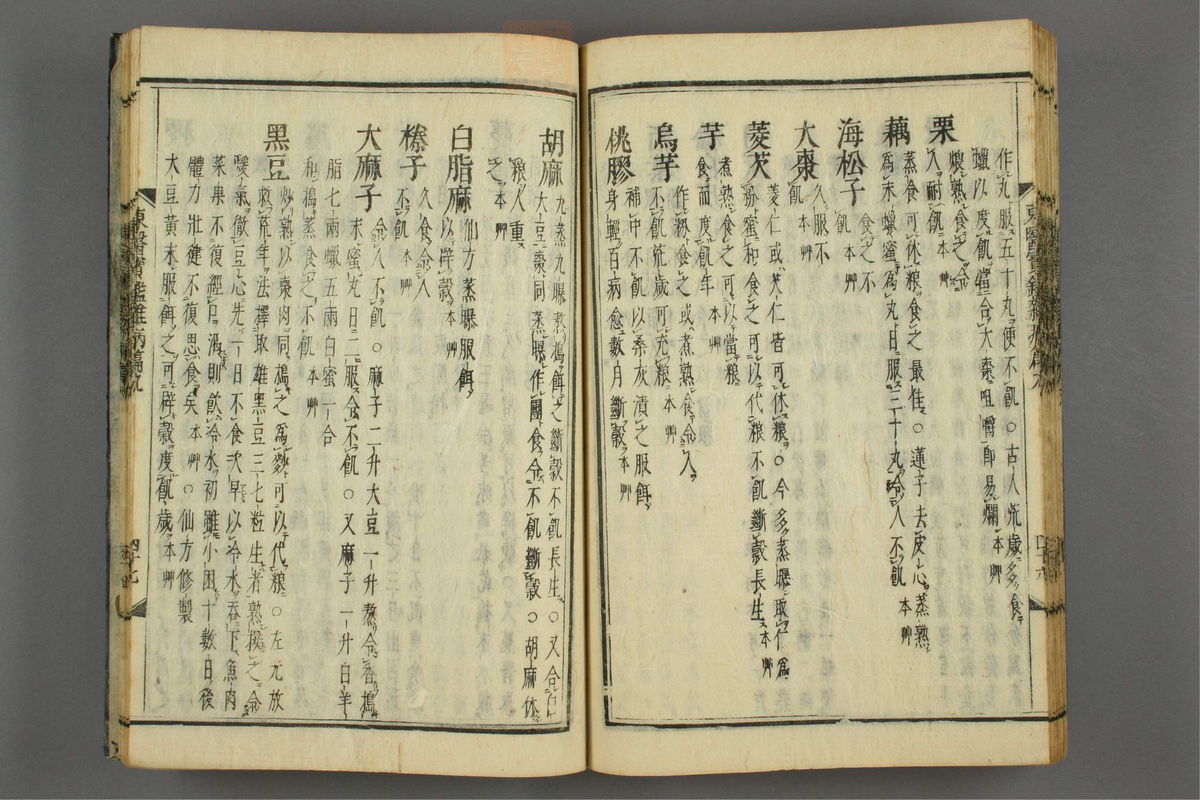 作丸服五十丸便不飢○古人荒歲多食
蠟以度飢當合大棗咀嚼即易爛本艸
栗
煨熟食之令
人耐飢本艸
藕
蒸食可休粮食之最佳○蓮子去皮心蒸熟
爲末蠟蜜爲丸日服三十丸令人不飢本艸
海松子
食之不
飢本艸
大棗
久服不
飢本艸
菱芡
菱仁或芡仁皆可休粮○今多蒸曝取仁爲
粉蜜和食之可以代粮不飢斷穀長生本艸
芋
煮熟食之可以當粮
食而度飢年本艸
烏芋
作粉食之或煮熟食令人
不飢荒歲可充粮本艸
桃膠
補中不飢以桑灰漬之服餌
身輕百病愈數月斷穀本艸
胡麻
九蒸九曝煮搗餌之斷穀不飢長生○又合白
大豆棗同蒸曝作團食令不飢斷穀○胡麻休
粮人重
之本艸
白脂麻
仙方蒸曝服餌
以辟穀本艸
榛子
久食令人
不飢本艸
大麻子
令人不飢○麻子二升大豆一升熬令香搗
末蜜丸日二服令不飢○又麻子一升白羊
脂七兩蠟五兩白蜜一合
和搗蒸食之不飢本艸
黑豆
炒熟以棗肉同搗之爲麨可以代粮○左元放
救荒年法擇取雄黑豆三七粒生者熟挼之令
煖氣徹豆心先一日不食次早以冷水吞下魚肉
菜果不復經口渴則飮冷水初雖小困十數日後
體力壯健不復思食矣本艸○仙方修製
大豆黃末服餌之可辟穀度飢歲本艸
東醫寶鑑雜病篇九
四十七